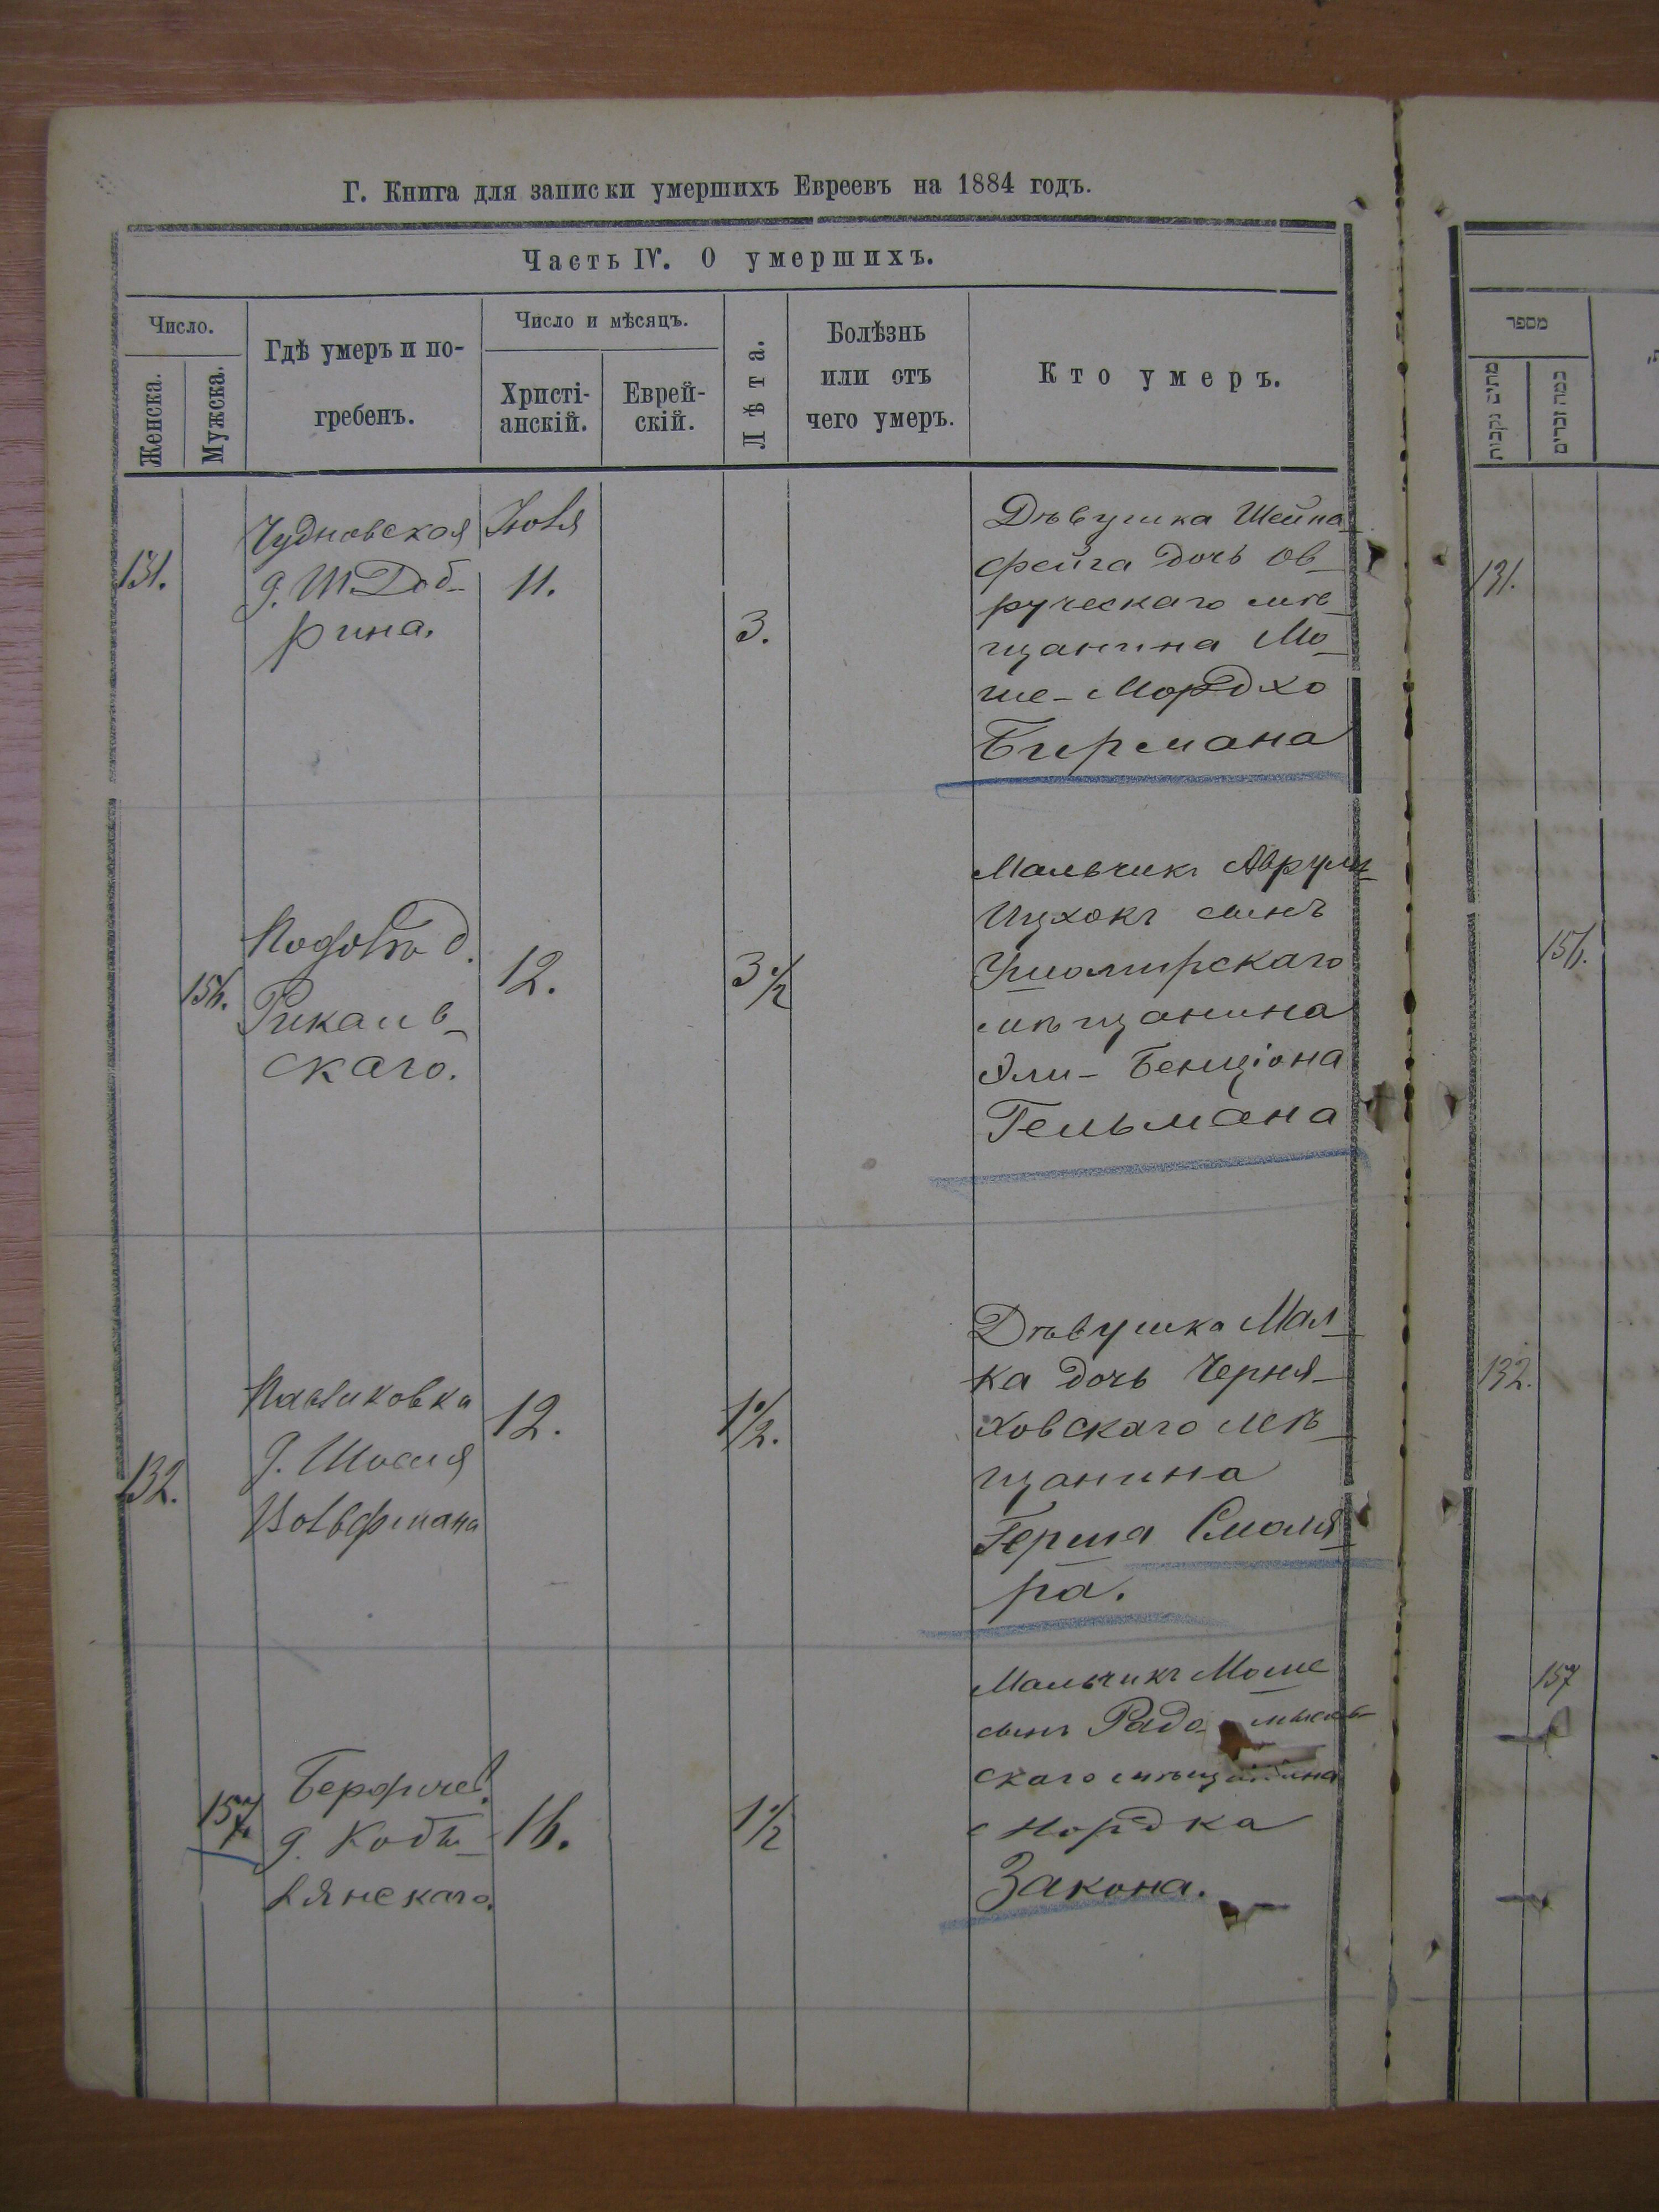 Г. Книга для записки умершихъ Евреевъ на 1884 годъ.
Часть IV. О умершихъ.
Число.
Женска.
Мужска.
Гдѣ умеръ и по-
гребенъ.
Число и мѣсяцъ.
Христі-
анскій.
Еврей-
скій.
Лѣта.
Болѣзнь
или отъ
чего умеръ.
Кто умеръ.
131.
Чудновская
д. Ш Доб-
рина.
Июля
11.
3.
Дѣвушка Шейна
фейга дочь Ов-
ручскаго мѣ-
щанина Мо-
ше-Мордхо
Бирмана
156.
Подолъ д.
Рикан в-
скаго.
12.
3 1/2
Мальчикъ Аврум-
Ицхокъ сынъ
Ушомирскаго
мѣщанина
Эли-Бенціона
Гельмана
132.
Павликовка
д. Шоеля
Вольфмана
12.
1 1/2.
Дѣвушка Мал-
ка дочь Черня-
ховскаго мѣ-
щанина
Герша Смоля-
ра.
157
Бердичев.
д. Кобы-
лянскаго.
16.
1 1/2
Мальчикъ Моше
сынъ Радо-мысль-
скаго мѣщанина
Мордка
Закона.
מספר
מתים נקבות
כמה זכרים
131.
156.
132.
157